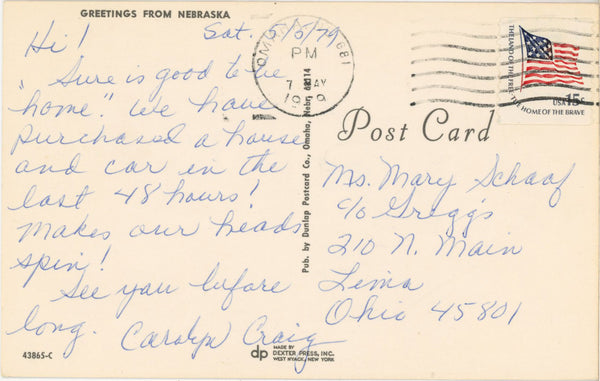 GREETINGS FROM NEBRASKA
Hi! Sat. 5/5/79
Sure is good to be
"home". We have
purchased a house
and car in the
last 48 hours!
Makes our heads
spin!
See you before
long.
Carolyn Craig
43865-C
Pub. by Dunlap Postcard Co., Omaha, Nebr. 68114
dp MADE BY
DEXTER PRESS, INC.
WEST NYACK, NEW YORK
PM
7 MAY
1979
681
THE LAND OF THE FREE
THE HOME OF THE BRAVE
USA 15c
Post Card
Ms. Mary Schaaf
c/o Gregg's
210 N. Main
Lima
Ohio 45801